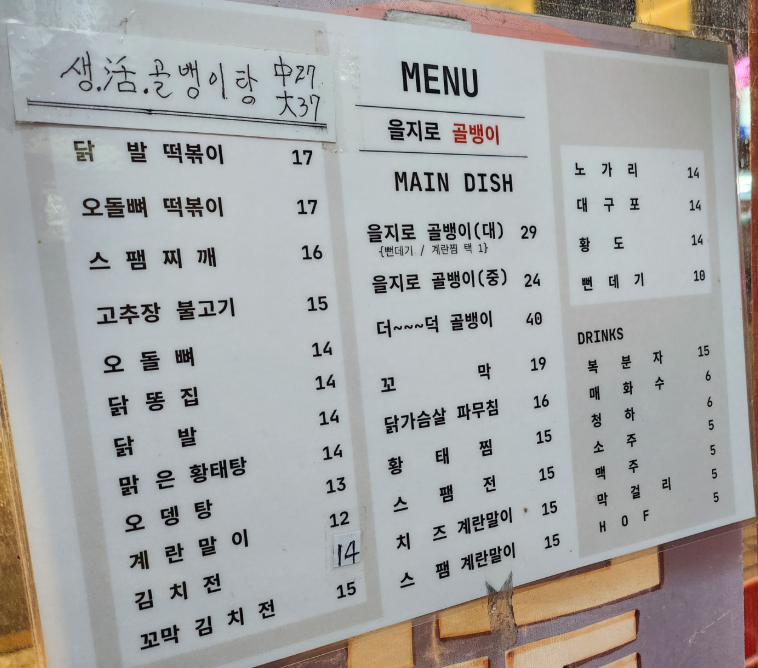 생.活.골뱅이탕 中27
大37
닭 발 떡볶이 17
오돌뼈 떡볶이 17
스 팸 찌 깨 16
고추장 불고기 15
오 돌 뼈 14
닭 똥 집 14
닭 발 14
맑 은 황태탕 14
오 뎅 탕 13
계 란 말 이 12
김 치 전 14
꼬막 김 치 전 15
MENU
을지로 골뱅이
MAIN DISH
을지로 골뱅이(대) 29
{뻔데기 / 계란찜 택 1}
을지로 골뱅이(중) 24
더~~~덕 골뱅이 40
꼬 막 19
닭가슴살 파무침 16
황 태 찜 15
스 팸 전 15
치 즈 계란말이 15
스 팸 계란말이 15
노 가 리 14
대 구 포 14
황 도 14
뻔 데 기 10
DRINKS
복 분 자 15
매 화 수 6
청 하 6
소 주 5
맥 주 5
막 걸 리 5
H O F 5